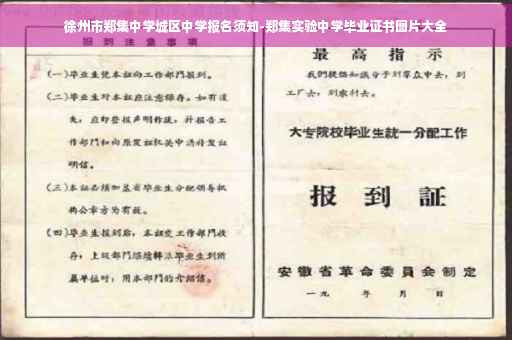 徐州市郑集中学城区中学报名须知-郑集实验中学毕业证书图片大全
报到注意事项
(一)毕业生凭本证向工作部门报到。
(二)毕业生对本证应注意保存。如有遗
失，应即登报声明作废，并报告工
作部门和向原发证机关申请补发证
明信。
(三)本证必须加盖省毕业生分配领导机
构公章方为有效。
(四)毕业生报到后，本证交工作部门收
存；上级部门继续转派毕业生到所
属单位时，用本部门的介绍信。
最高指示
我们提倡知识分子到群众中去，到
工厂去，到农村去。
大专院校毕业生統一分配工作
报到証
安徽省革命委員会制定
一九 年 月 日